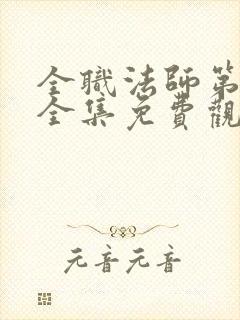 全職法師第
全集免費觀
元音元音